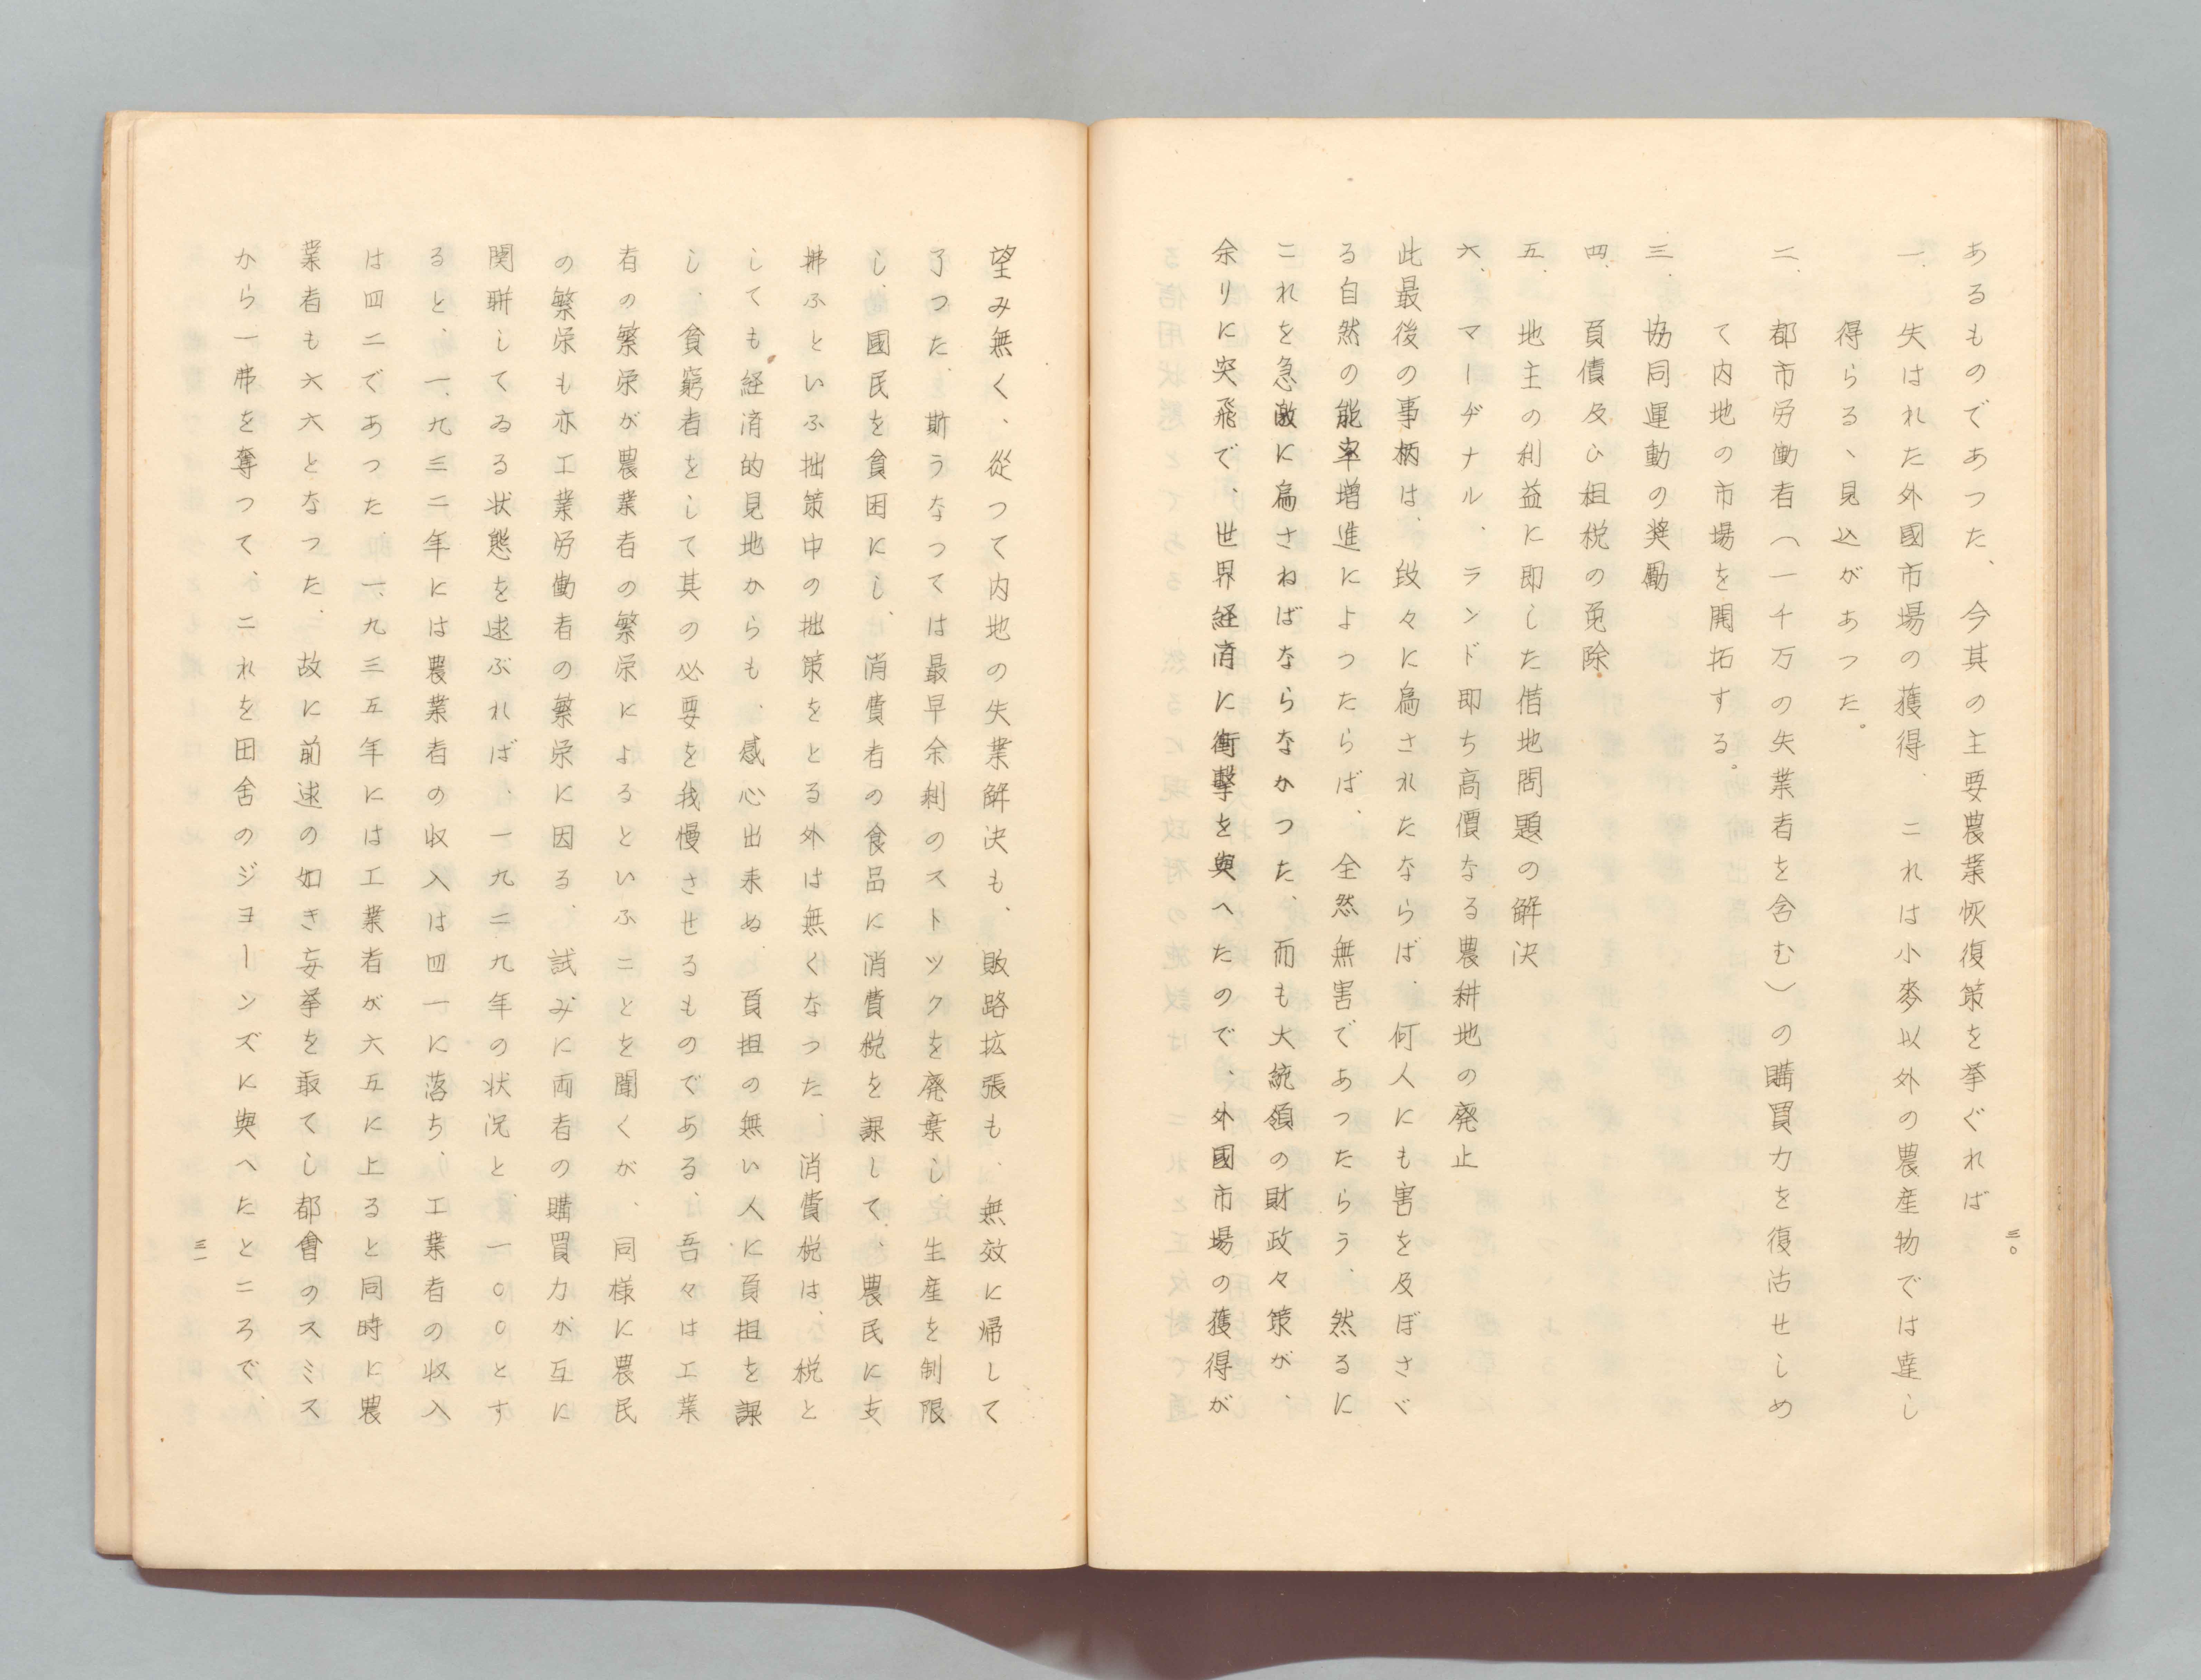 あるものであつた、今其の主要農業恢復策を挙ぐれば
一、失はれた外國市場の獲得、これは小麥以外の農産物では達し
得らるゝ見込があつた。
二、都市労働者（一千万の失業者を含む）の購買力を復活せしめ
て内地の市場を開拓する。
三、協同運動の奨勵
四、負債及ひ租税の免除
五、地主の利益に即した借地問題の解決
六、マーヂナル、ランド即ち高價なる農耕地の廃止
此最後の事柄は、段々に為されたならば、何人にも害を及ぼさゞ
る自然の能率増進によつたらば、全然無害であつたらう、然るに
これを急激に為さねばならなかつた、而も大統領の財政々策が、
余りに突飛で、世界経済に衝撃を與へたので、外國市場の獲得が
三〇
望み無く、從つて内地の失業解決も、販路拡張も、無效に帰して
了つた、斯うなつては最早余剰のストツクを廃棄し、生産を制限
し、國民を貧困にし、消費者の食品に消費税を課して、農民に支
拂ふといふ拙策中の拙策をとる外は無くなつた、消費税は、税と
しても経済的見地からも、感心出来ぬ、負担の無い人に負担を課
し、貧窮者をして其の必要を我慢させるものである、吾々は工業
者の繁栄が農業者の繁栄によるといふことを聞くが、同様に農民
の繁栄も亦工業労働者の繁栄に因る、試みに両者の購買力が互に
関聯してゐる状態を述ぶれば、一九二九年の状況と、一〇〇とす
ると、一、九三二年には農業者の収入は四一に落ち、工業者の収入
は四二であつた、一、九三五年には工業者が六五に上ると同時に農
業者も六六となつた、故に前述の如き妄挙を敢てし都會のスミス
から一弗を奪つて、これを田舎のジヨーンズに與へたところで、
三一